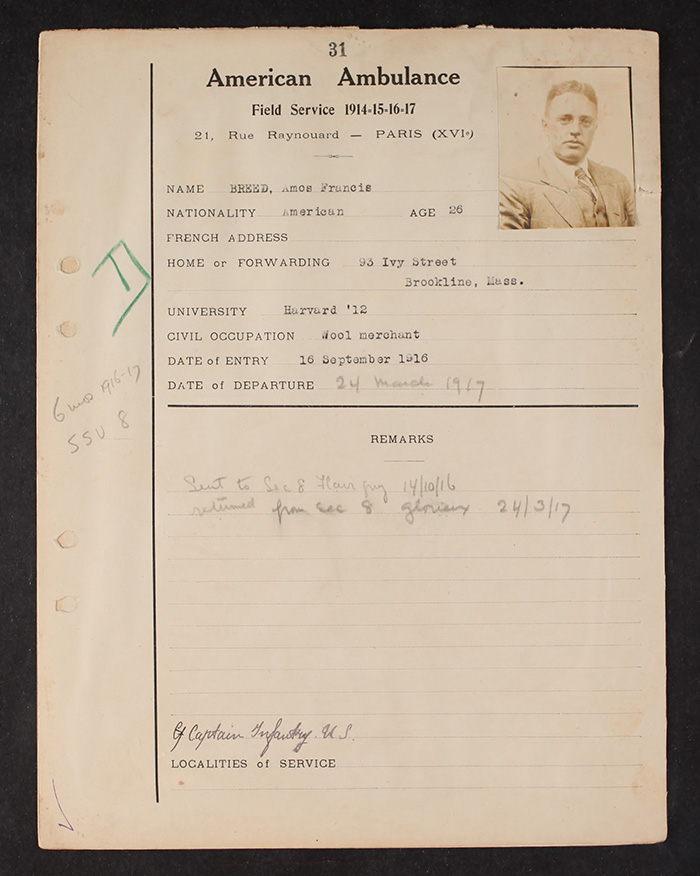 31
American Ambulance
Field Service 1914-15-16-17
21, Rue Raynouard — PARIS (XVIe)
NAME BREED, Amos Francis
NATIONALITY American AGE 26
FRENCH ADDRESS
HOME or FORWARDING 93 Ivy Street
Brookline, Mass.
UNIVERSITY Harvard '12
CIVIL OCCUPATION Wool merchant
DATE of ENTRY 16 September 1916
DATE of DEPARTURE 24 March 1917
6 mos 1916-17
SSU 8
REMARKS
Sent to Sec 8 14/10/16
returned from Sec 8 glorieux 24/3/17
Captain Infantry U.S.
LOCALITIES of SERVICE